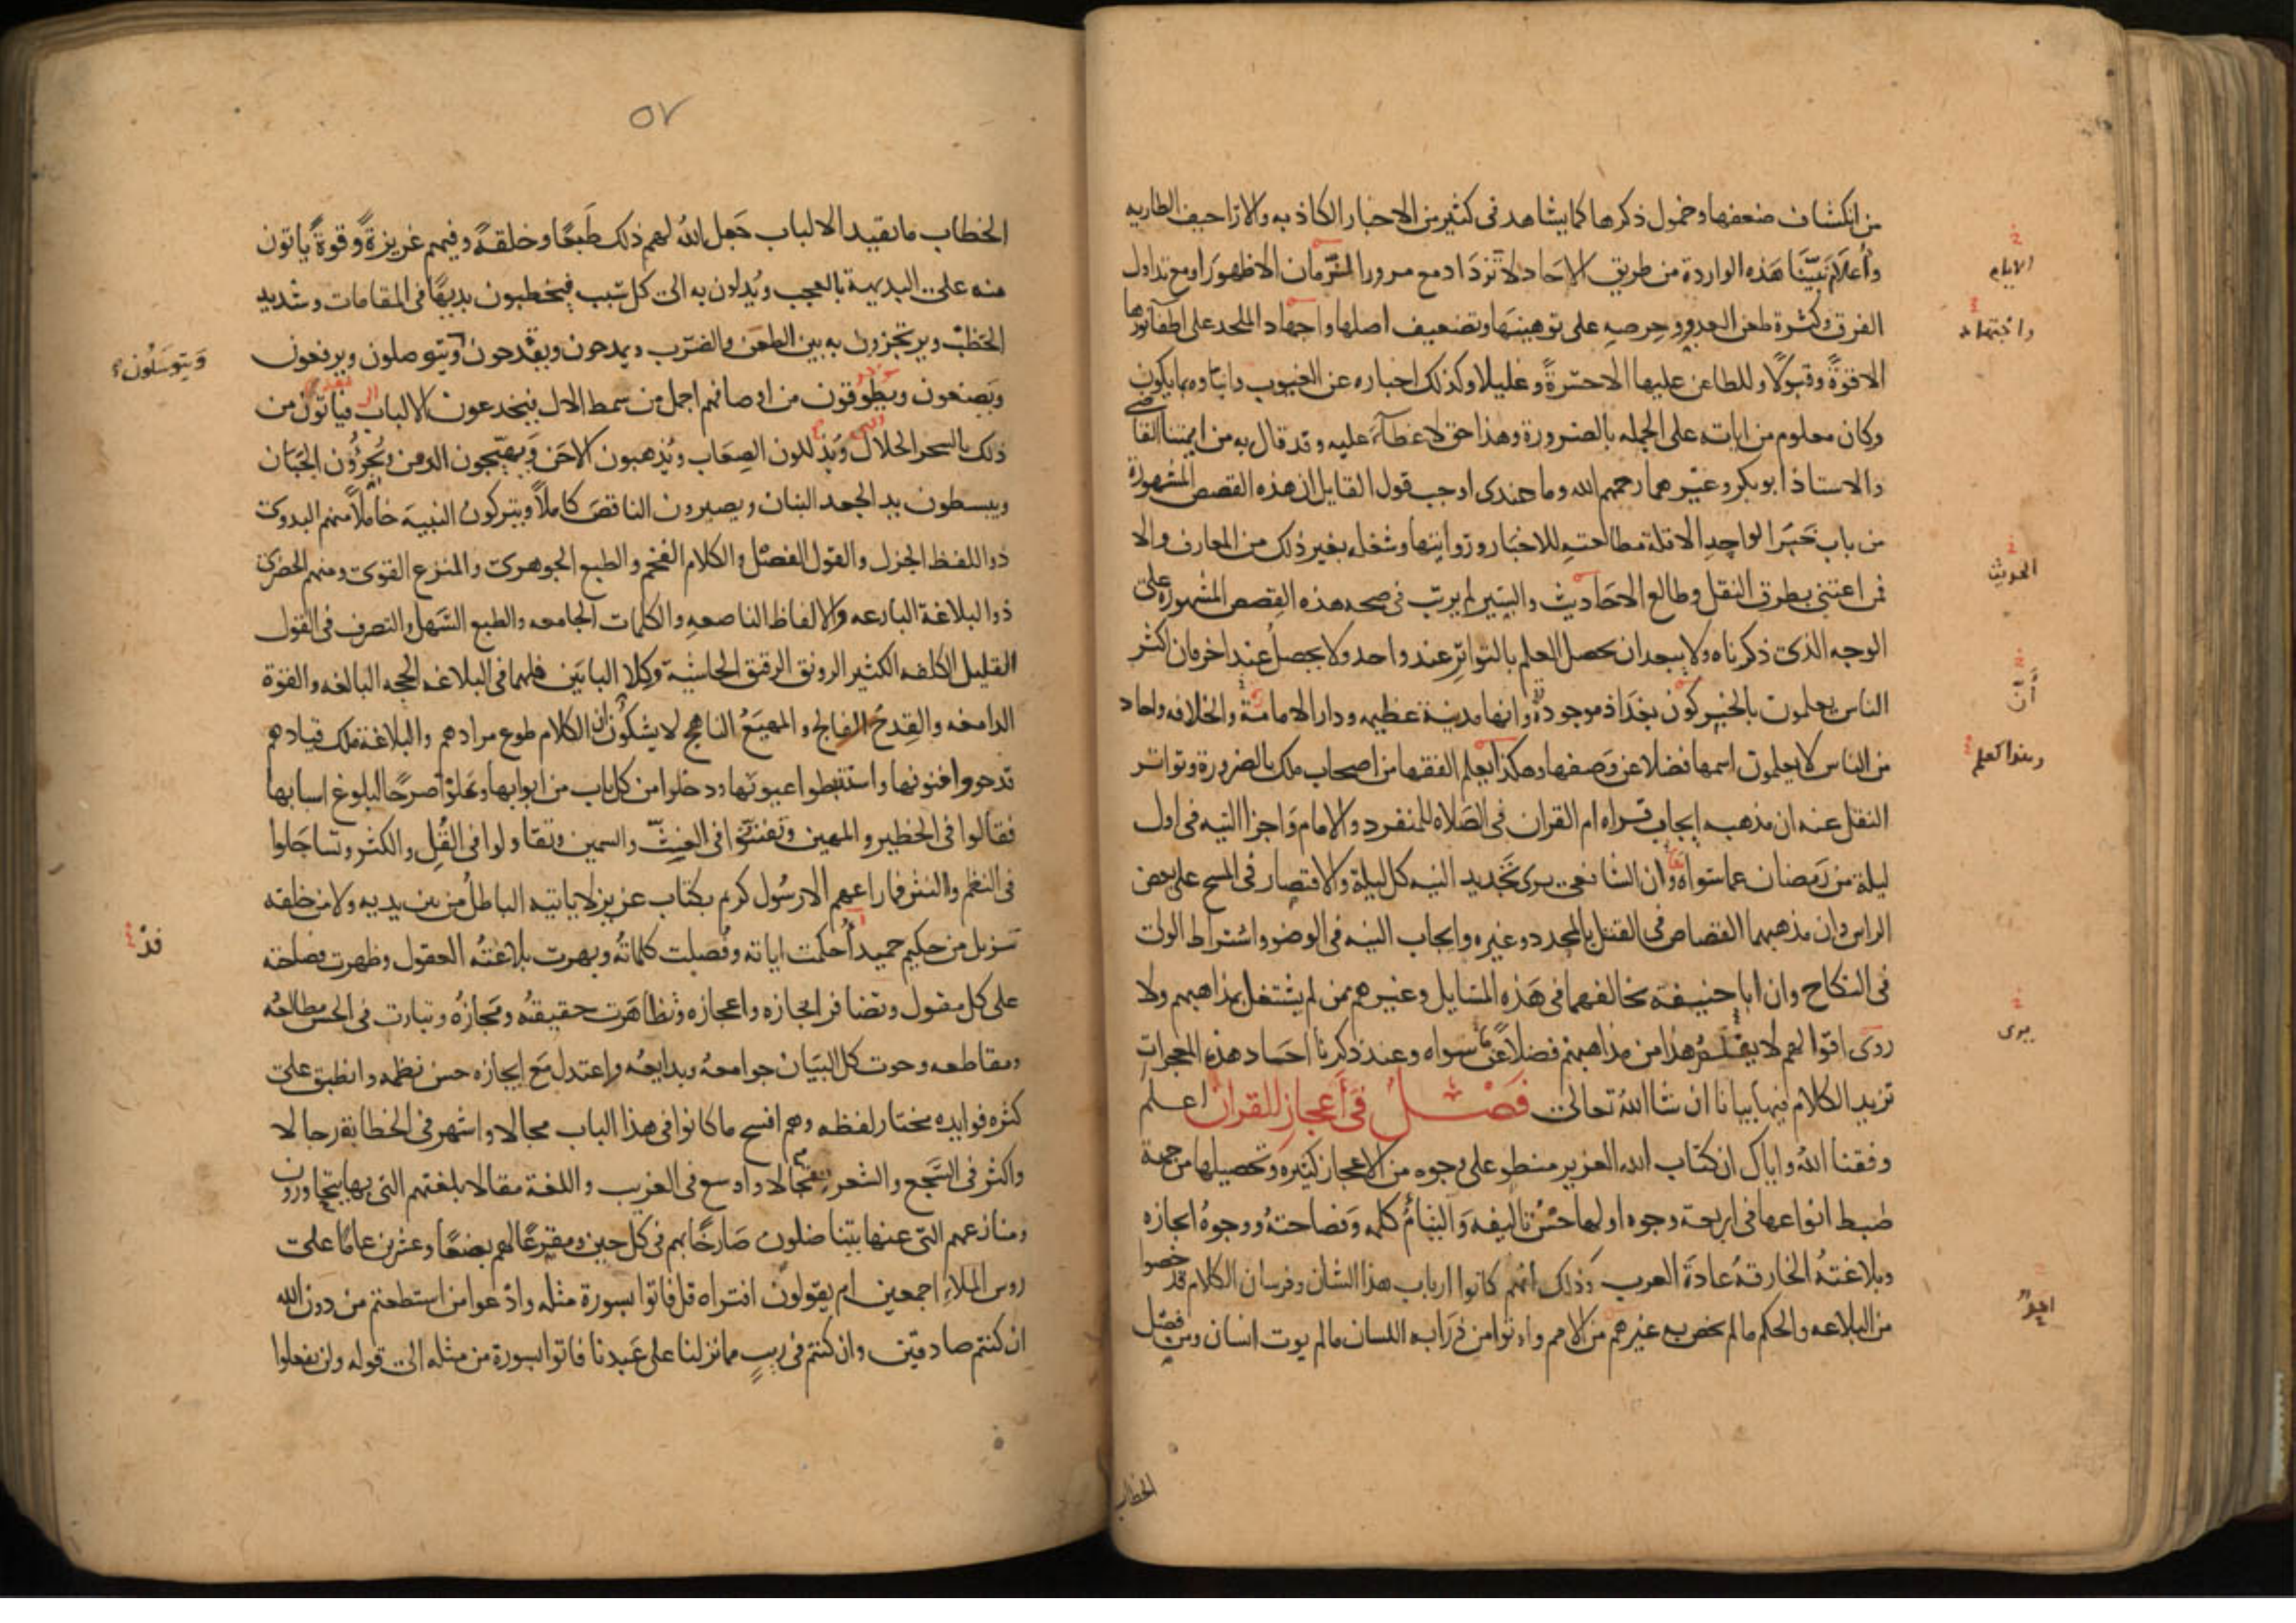 من انكشاف ضعفها وخمول ذكرها كما يشاهد فى كثير من الاخبار الكاذبه والاراجيف الطاريه
وأعلام نبيّنا هذه الواردة من طريق الاحاد لا تزداد مع مرور الزمان الا ظهورا ومع تداول
الفرق وكثرة طعن العدو وحرصه على توهينها وتضعيف اصلها واجهاد الملحد على اطفآ نورها
الا قوةً وقبولًا وللطاعن عليها الا حسرةً وغليلا وكذلك اخباره عن الغيوب وانباوه بما يكون
وكان معلوم من اياته على الجمله بالضرورة وهذا حق لا غطآء عليه وقد قال به من ايمتنا القاضى
والاستاذ ابو بكر وغيرهما رحمهم الله وما عندى اوجب قول القايل ان هذه القصص المشهورة
من باب خبر الواحد الا قلة مطالعته للاخبار وروايتها وشغله بغير ذلك من المعارف والا
فمن اعتنى بطرق النقل وطالع الاحاديث والسير لم يرتب فى صحه هذه القصص المشهوره على
الوجه الذى ذكرناه ولا يبعد ان يحصل العلم بالتواتر عند واحد ولا يحصل عند اخر فان اكثر
الناس يعلمون بالخبر كون بغداذ موجودة وانها مدينة عظيمه ودار الامامة والخلافه واحاد
من الناس لا يعلمون اسمها فضلا عن وصفها وهكذا يعلم الفقها من اصحاب ملك بالضرورة وتواتر
النقل عنه ان مذهبه ايجاب قراه ام القران فى الصلاه للمنفرد والامام واجزا النيه فى اول
ليلة من رمضان عما سواه وان الشافعى يرى تجديد النيه كل ليلة والاقتصار فى المسح على بعض
الراس وان مذهبهما القصاص فى القتل بالمحدد وغيره وايجاب النيه فى الوضو واشتراط الولى
فى النكاح وان ابا حنيفة يخالفهما فى هذه المسايل وغيرهم ممن لم يشتغل بمذاهبهم ولا
روى اقوالهم لا يعلم هذا من مذاهبهم فضلاً عن سواه وعند ذكرنا احاد هذه المعجزات
نزيد الكلام فيها بيانا ان شا الله تعالى فصل فى أعجاز القران اعلم
وفقنا الله واياك ان كتاب الله العزيز منطو على وجوه من الاعجاز كثيره وتحصيلها من جهة
ضبط انواعها فى اربعة وجوه اولها حسن تاليفه والتيام كلمه وفصاحته ووجوه ايجازه
وبلاغته الخارقة عادة العرب وذلك انهم كانوا ارباب هذا الشان وفرسان الكلام قد خصوا
من البلاغه والحكم ما لم يخص به غيرهم من الامم واوتوا من ذرابه اللسان ما لم يوت انسان ومن فصل
الخطاب
الايام
واجتهاد
الحديث
أنّ
يروى
٥٧
الخطاب ما يقيد الالباب جعل الله لهم ذلك طبعًا وخلقةً وفيهم غريزةً وقوةً ياتون
منه على البديهة بالعجب ويدلون به الى كل سبب فيخطبون بديهًا فى المقامات وشديد
الخطب ويرتجزون به بين الطعن والضرب ويمدحون ويقدحون ويتوصلون ويرفعون
ويضعون ويطوقون من اوصافهم اجمل من سمط الال فيخدعون الالباب فياتون من
ذلك بالسحر الحلال ويذللون الصعاب ويذهبون الاحن ويهيجون الدمن ويجرؤن الجبان
ويبسطون يد الجعد البنان ويصيرون الناقص كاملاً ويتركون النبيه خاملاً منهم البدوى
ذو اللفظ الجزل والقول الفصل والكلام الفخم والطبع الجوهرى والمنزع القوى ومنهم الحضرى
ذو البلاغة البارعه والالفاظ الناصعه والكلمات الجامعه والطبع السهل والتصرف فى القول
القليل الكلفه الكثير الرونق الرقيق الحاشية وكلا البابين فلهما فى البلاغه الحجه البالغه والقوة
الدامغه والقدح الفالج والمهيع الناهج لا يشكون ان الكلام طوع مرادهم والبلاغة ملك قيادهم
قد حووا فنونها واستنبطوا عيونها ودخلوا من كل باب من ابوابها وعلوا صرحًا لبلوغ اسبابها
فقالوا فى الخطير والمهين وتفننوا فى الغث والسمين وتقاولوا فى القل والكثر وتساجلوا
فى النظم والنثر فما راعهم الا رسول كريم بكتاب عزيز لا ياتيه الباطل من بين يديه ولا من خلفه
تنزيل من حكيم حميد أُحكمت اياته وفُصلت كلماته وبهرت بلاغته العقول وظهرت فصاحته
على كل مقول وتضافر ايجازه واعجازه وتظاهرت حقيقته ومجازه وتبارت فى الحسن مطالعه
ومقاطعه وحوت كل البيان جوامعه وبدايعه واعتدل مع ايجازه حسن نظمه وانطبق على
كثره فوايده مختار لفظه وهم افسح ما كانوا فى هذا الباب مجالا واشهر فى الخطابة رجالا
واكثر فى السجع والشعر سجالا واوسع فى الغريب واللغة مقالا بلغتهم التى بها يتحاورون
ومنازعهم التى عنها يتناضلون صارخًا بهم فى كل حين ومقرعًا لهم بضعًا وعشرين عامًا على
روس الملاء اجمعين ام يقولون افتراه قل فاتوا بسورة مثله وادعوا من استطعتم من دون الله
ان كنتم صادقين وان كنتم فى ريب مما نزلنا على عبدنا فاتوا بسورة من مثله الى قوله ولن تفعلوا
ويتوسلون
قد